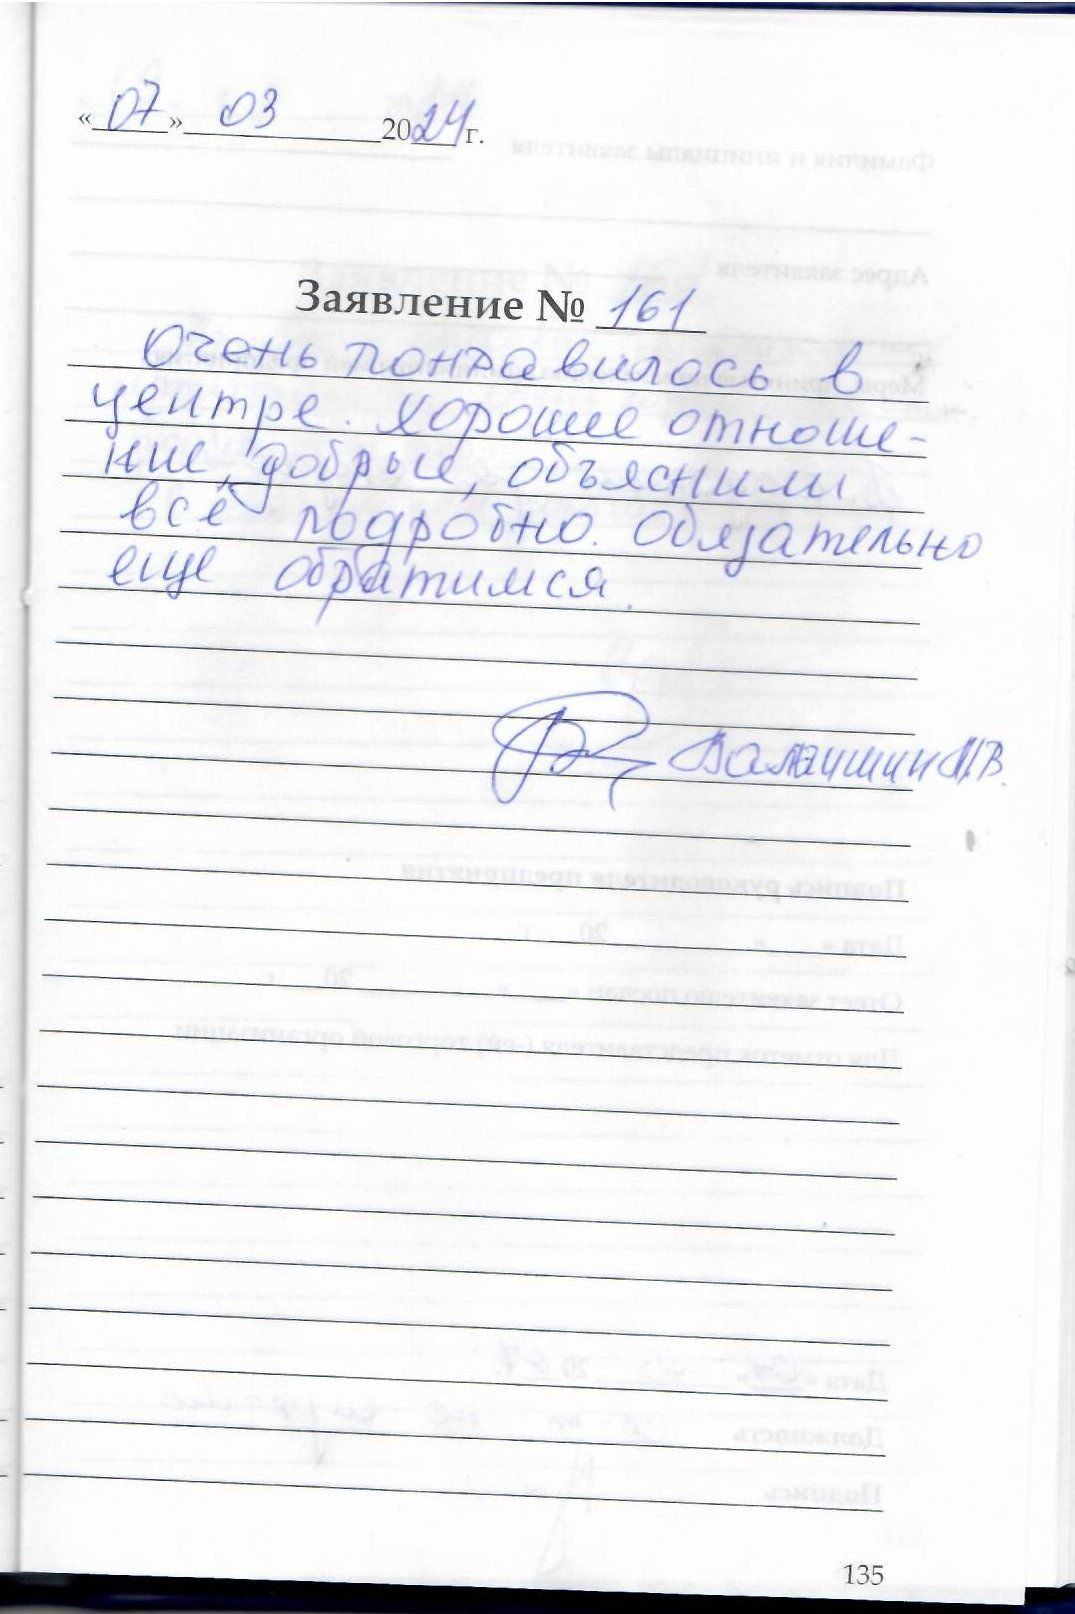 «07» 03 2024 г.
Заявление № 161
Очень понравилось в
центре. Хорошее отноше-
ние, добрые, объяснили
всё подробно. Обязательно
еще обратимся.
135